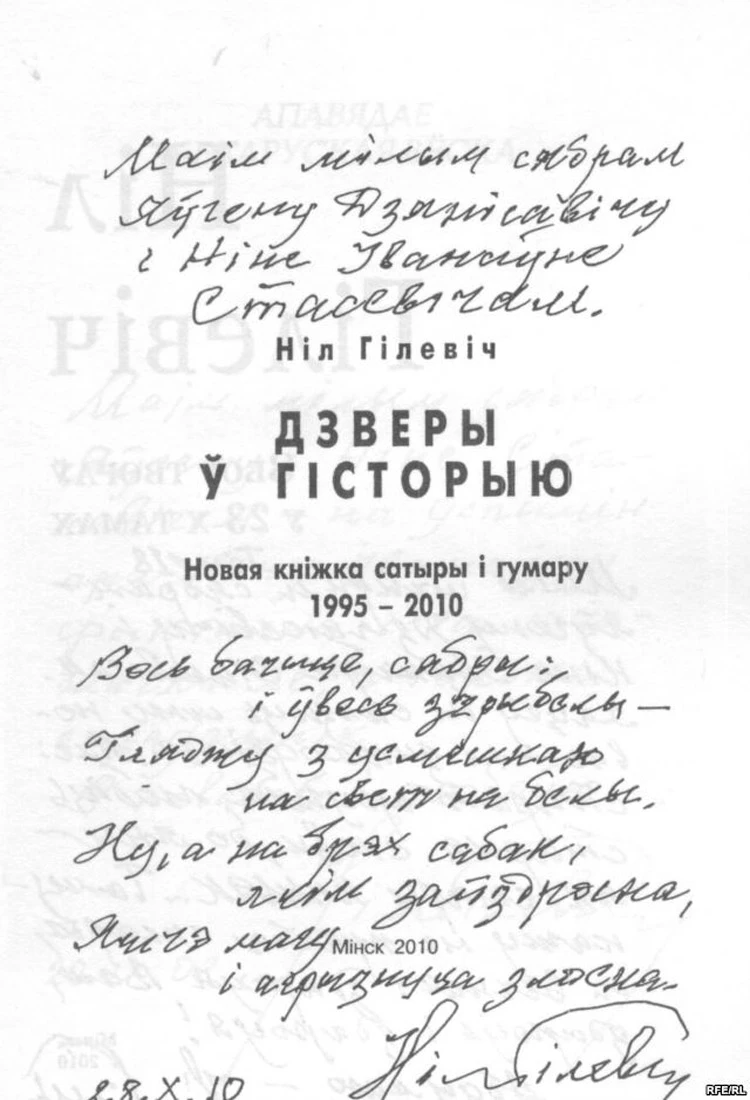 Маім мілым сябрам
Яўгену Дзянісавічу
і Ніне Іванаўне
Стасевічам.
Ніл Гілевіч
ДЗВЕРЫ
Ў ГІСТОРЫЮ
Новая кніжка сатыры і гумару
1995 – 2010
Вось бачыце, сябры:
і ўвесь зжыбелы —
Гляджу з усмешкаю
на свет на белы.
Ну, а на брэх сабак,
якім зайздросна,
Яшчэ магу
Мінск 2010
і агрызнуцца злосна.
Ніл Гілевіч
28.X.10
RFE/RL